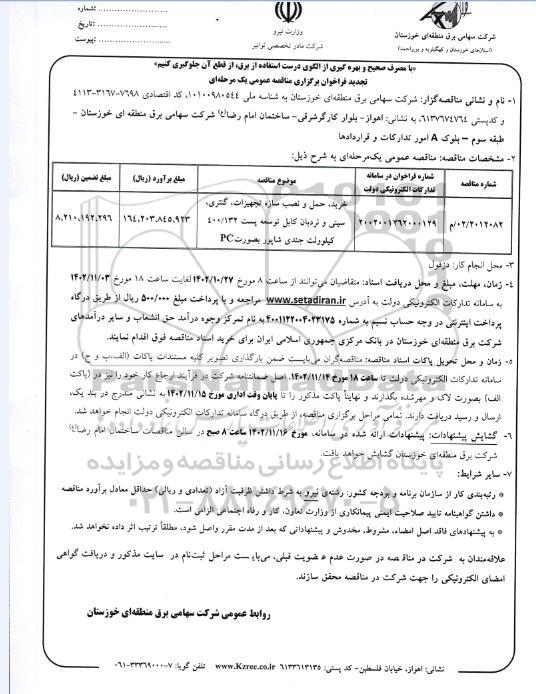 شماره: ........................
تاریخ: ........................
پیوست: ........................
وزارت نیرو
شرکت مادر تخصصی توانیر
شرکت سهامی برق منطقه‌ای خوزستان
(استان‌های خوزستان و کهگیلویه و بویراحمد)
«با مصرف صحیح و بهره گیری از الگوی درست استفاده از برق، از قطع آن جلوگیری کنیم»
تجدید فراخوان برگزاری مناقصه عمومی یک مرحله‌ای
۱- نام و نشانی مناقصه‌گزار: شرکت سهامی برق منطقه‌ای خوزستان به شناسه ملی ۱۰۱۰۰۹۸۰۵۴۴، کد اقتصادی ۷۶۹۸-۳۱۶۷-۴۱۱۳
و کدپستی ۶۱۳۷۶۷۴۷۶۴، به نشانی: اهواز- بلوار کارگرشرقی- ساختمان امام رضا(ع) شرکت سهامی برق منطقه ای خوزستان -
طبقه سوم – بلوک A امور تدارکات و قراردادها
۲- مشخصات مناقصه: مناقصه عمومی یک‌مرحله‌ای به شرح ذیل:
شماره مناقصه | شماره فراخوان در سامانه تدارکات الکترونیکی دولت | موضوع مناقصه | مبلغ برآورد (ریال) | مبلغ تضمین (ریال)
۰۲/۲۰۱۲۰۸۲/م | ۲۰۰۲۰۰۱۲۶۲۰۰۰۱۲۹ | خرید، حمل و نصب سازه تجهیزات، گنتری، | ۱۶۴.۲۰۳.۸۴۵.۹۲۳ | ۸.۲۱۰.۱۹۲.۲۹۶
سینی و نردبان کابل توسعه پست ۴۰۰/۱۳۲
کیلوولت جندی شاپور بصورت PC
۳- محل انجام کار: دزفول
۴- زمان، مهلت، مبلغ و محل دریافت اسناد: متقاضیان می‌توانند از ساعت ۸ مورخ ۱۴۰۲/۱۰/۲۷ لغایت ساعت ۱۸ مورخ ۱۴۰۲/۱۱/۰۳
به سامانه تدارکات الکترونیکی دولت به آدرس www.setadiran.ir مراجعه و با پرداخت مبلغ ۵۰۰/۰۰۰ ریال از طریق درگاه
پرداخت اینترنتی در وجه حساب نسیم به شماره ۴۰۰۱۱۲۲۰۰۴۰۲۳۱۷۵ به نام تمرکز وجوه درآمد حق انشعاب و سایر درآمدهای
شرکت برق منطقه‌ای خوزستان در بانک مرکزی جمهوری اسلامی ایران برای خرید اسناد مناقصه فوق اقدام نمایند.
۵- زمان و محل تحویل پاکات اسناد مناقصه: مناقصه‌گران می‌بایست ضمن بارگذاری تصویر کلیه مستندات پاکات (الف،ب و ج) در
سامانه تدارکات الکترونیکی دولت تا ساعت ۱۸ مورخ ۱۴۰۲/۱۱/۱۴، اصل ضمانتنامه شرکت در فرآیند ارجاع کار خود را نیز در (پاکت
الف) بصورت لاک و مهرشده بگذارند و نهایتاً پاکت مذکور را تا پایان وقت اداری مورخ ۱۴۰۲/۱۱/۱۵ به نشانی مندرج در بند یک،
ارسال و رسید دریافت دارند. تمامی مراحل برگزاری مناقصه، از طریق درگاه سامانه تدارکات الکترونیکی دولت انجام خواهد شد.
۶- گشایش پیشنهادات: پیشنهادات ارائه شده در سامانه، مورخ ۱۴۰۲/۱۱/۱۶ ساعت ۸ صبح در سالن مناقصات ساختمان امام رضا(ع)
شرکت برق منطقه‌ای خوزستان گشایش خواهد یافت.
۷- سایر شرایط:
* رتبه‌بندی کار از سازمان برنامه و بودجه کشور: رشته‌ی نیرو به شرط داشتن ظرفیت آزاد (تعدادی و ریالی) حداقل معادل برآورد مناقصه
* داشتن گواهینامه تایید صلاحیت ایمنی پیمانکاری از وزارت تعاون، کار و رفاه اجتماعی الزامی است.
* به پیشنهادهای فاقد اصل امضاء، مشروط، مخدوش و پیشنهاداتی که بعد از مدت مقرر واصل شود، مطلقاً ترتیب اثر داده نخواهد شد.
علاقه‌مندان به شرکت در مناقصه در صورت عدم عضویت قبلی، می‌بایست مراحل ثبت‌نام در سایت مذکور و دریافت گواهی
امضای الکترونیکی را جهت شرکت در مناقصه محقق سازند.
روابط عمومی شرکت سهامی برق منطقه‌ای خوزستان
نشانی: اهواز، خیابان فلسطین- کد پستی: ۶۱۳۳۶۱۳۱۳۵ www.Kzrec.co.ir تلفن گویا: ۷-۰۶۱-۳۳۳۶۹۰۰۰